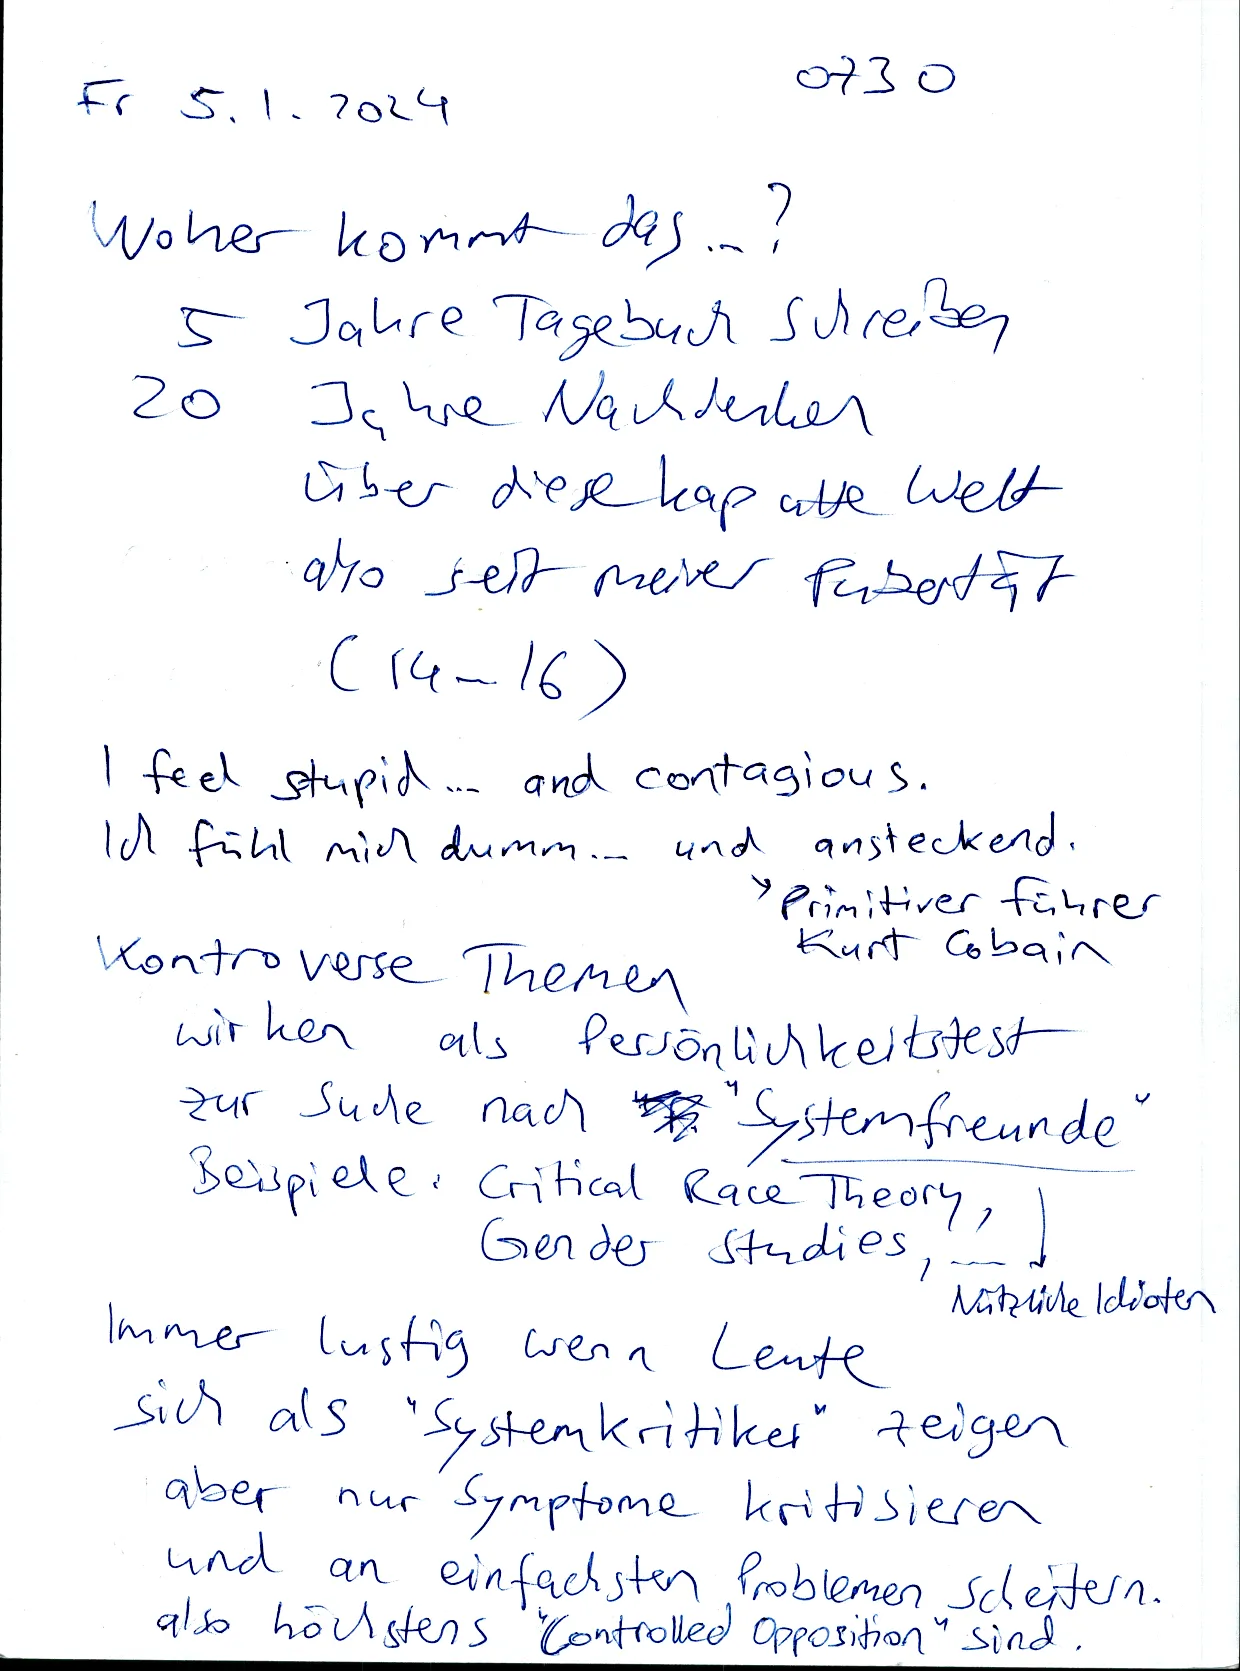 0730
Fr 5.1.2024
Woher kommt das...?
5 Jahre Tagebuch schreiben
20 Jahre Nachdenken
über diese kaputte Welt
also seit meiner Pubertät
(14-16)
I feel stupid... and contagious.
Ich fühl mich dumm... und ansteckend.
Primitiver Führer
Kurt Cobain
Kontroverse Themen
wirken als Persönlichkeitstest
zur Suche nach "Systemfreunde"
Beispiele: Critical Race Theory,
Gender Studies, ...
Nützliche Idioten
Immer lustig wenn Leute
sich als "Systemkritiker" zeigen
aber nur Symptome kritisieren
und an einfachsten Problemen scheitern.
also höchstens "Controlled Opposition" sind.